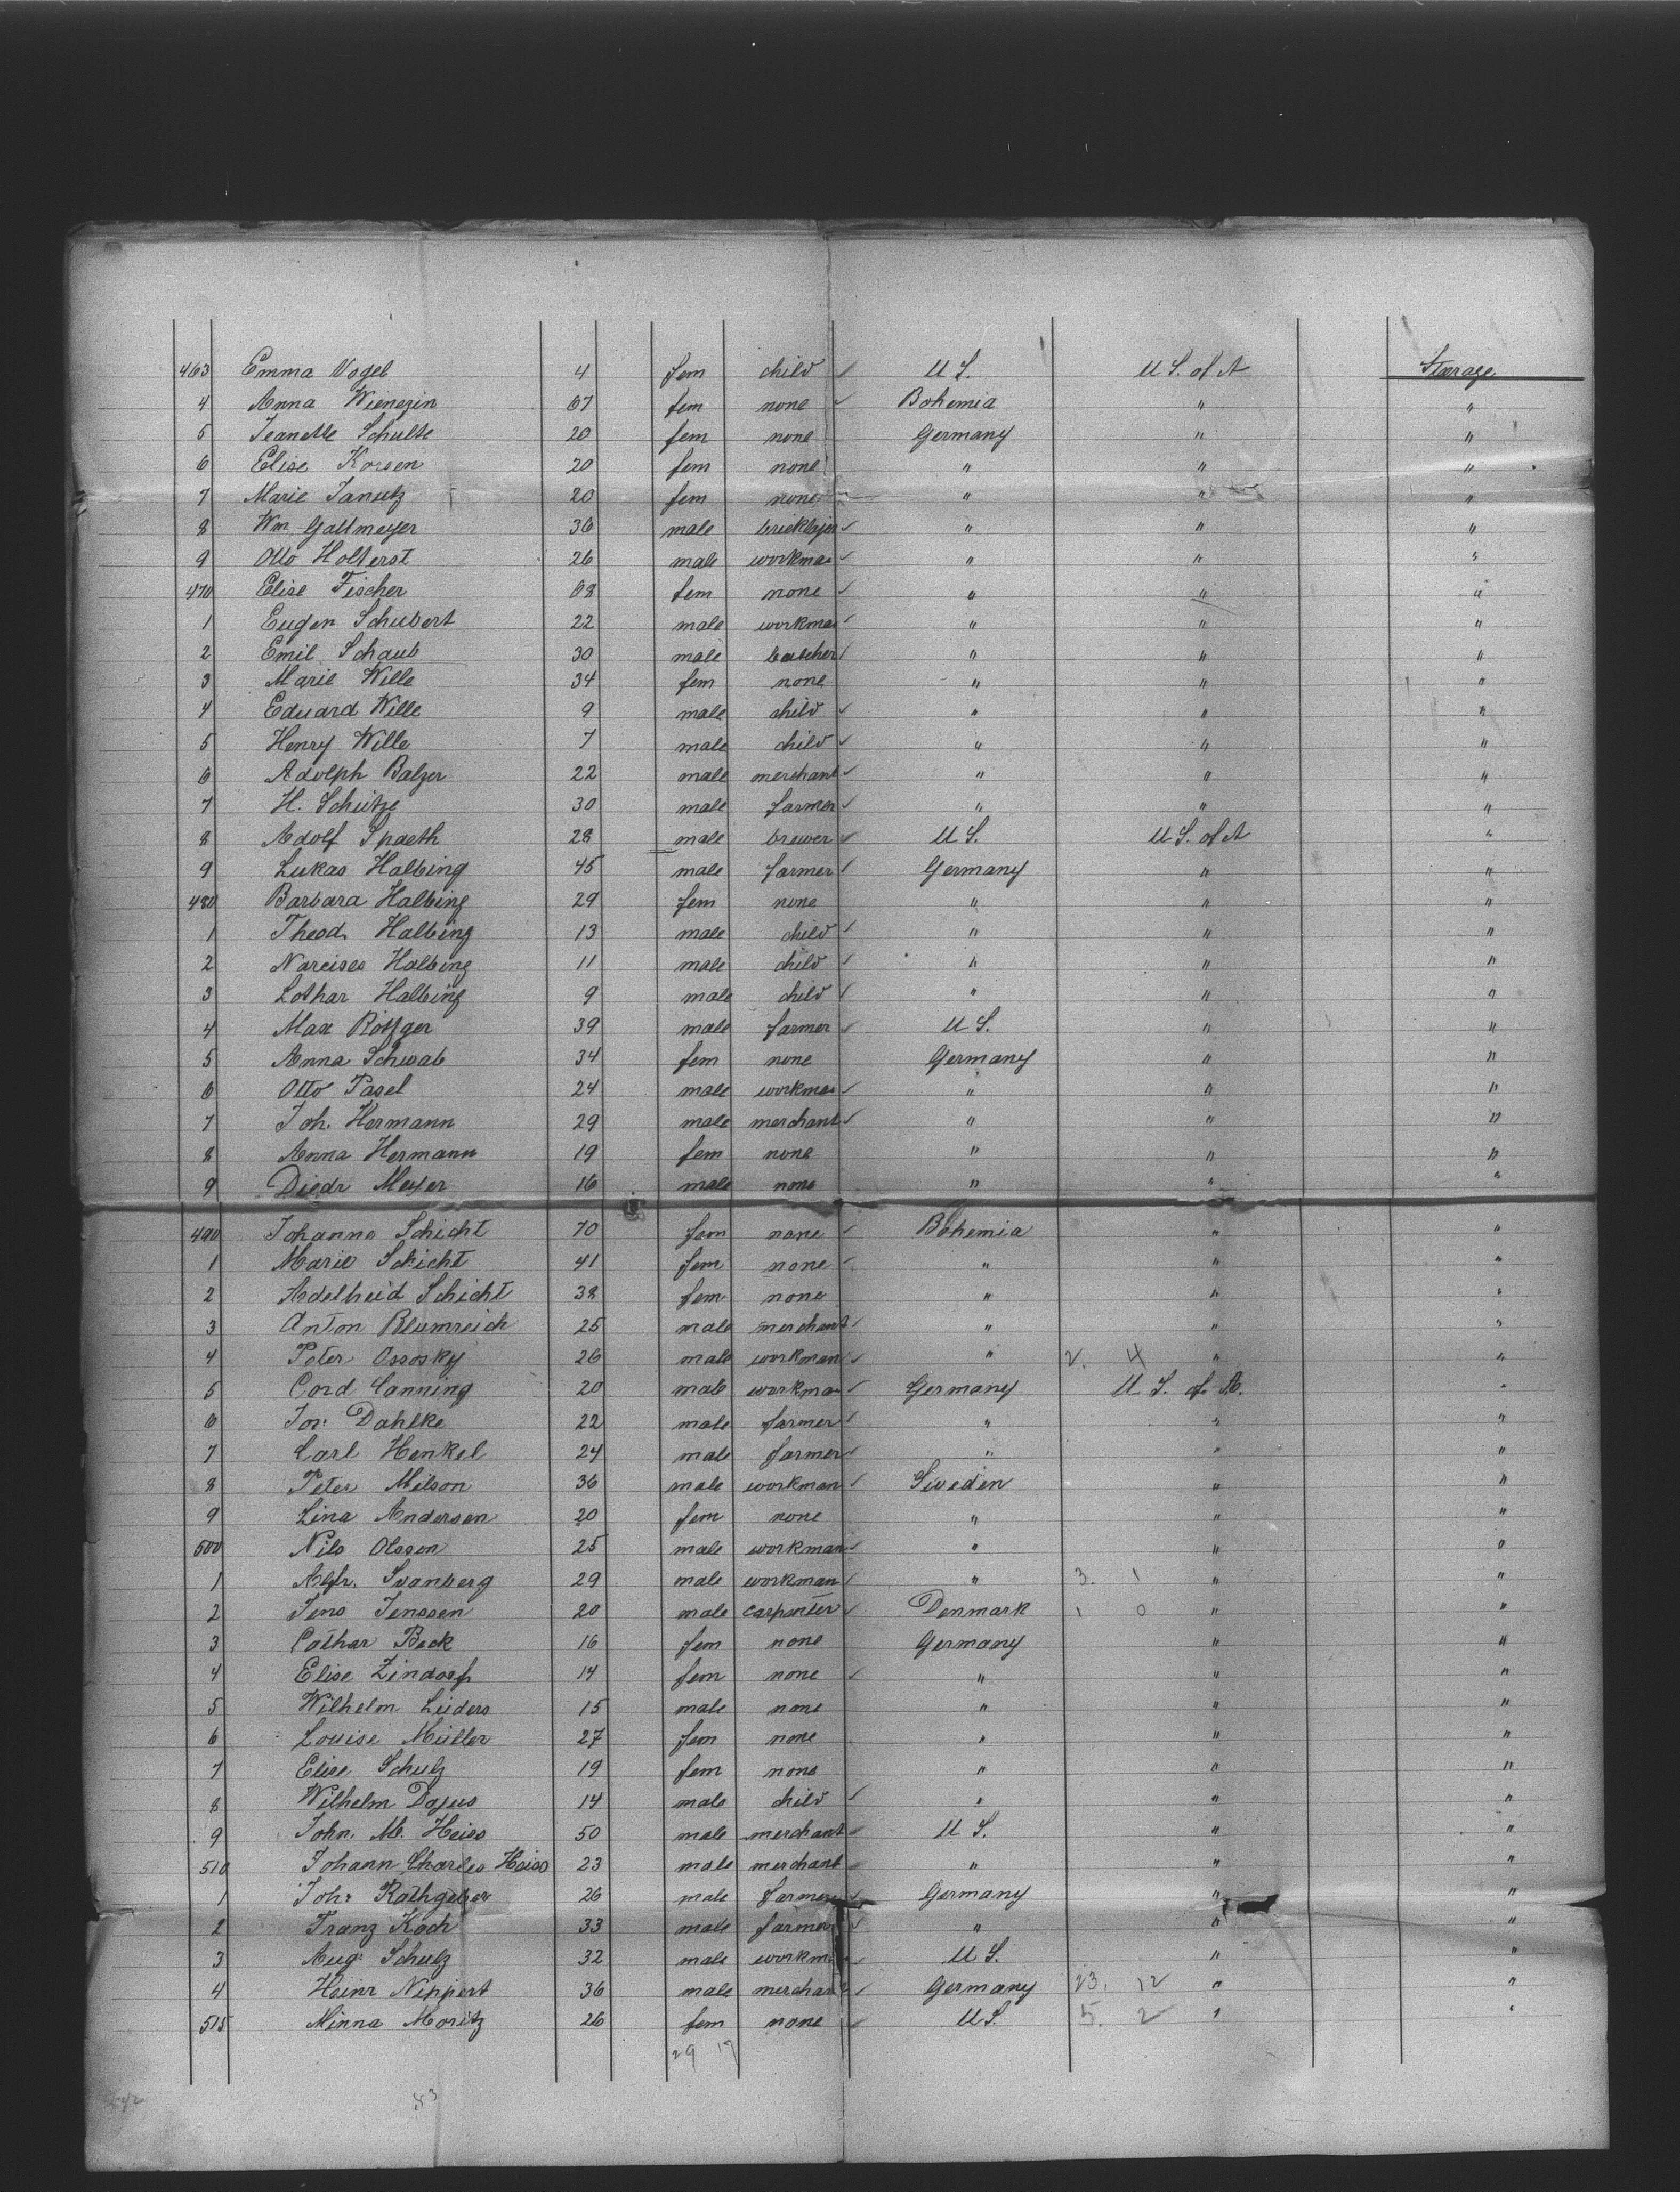 463 Emma Vogel 4 fem child U S. U S. of A Steerage
4 Anna Wienezin 67 fem none Bohemia " "
5 Jeanette Schulte 20 fem none Germany " "
6 Elise Korsen 20 fem none " " "
7 Marie Janutz 20 fem none " " "
8 Wm Gallmeyer 36 male bricklayer " " "
9 Otto Holterst 26 male workman " " "
470 Elise Fischer 68 fem none " " "
1 Eugen Schubert 22 male workman " " "
2 Emil Schaub 30 male butcher " " "
3 Marie Wille 34 fem none " " "
4 Eduard Wille 9 male child " " "
5 Henry Wille 7 male child " " "
6 Adolph Balzer 22 male merchant " " "
7 H. Schütze 30 male farmer " " "
8 Adolf Spaeth 28 male brewer U S. U S. of A "
9 Lukas Halbing 45 male farmer Germany " "
480 Barbara Halbing 29 fem none " " "
1 Theod Halbing 13 male child " " "
2 Narcises Halbing 11 male child " " "
3 Lothar Halbing 9 male child " " "
4 Max Röttger 39 male farmer U S. " "
5 Anna Schwab 34 fem none Germany " "
6 Otto Pasel 24 male workman " " "
7 Joh. Hermann 29 male merchant " " "
8 Anna Hermann 19 fem none " " "
9 Diedr Meyer 16 male none " " "
490 Johanna Schicht 70 fem none Bohemia " "
1 Marie Schicht 41 fem none " " "
2 Adelheid Schicht 38 fem none " " "
3 Anton Blumreich 25 male merchant " " "
4 Peter Ossosky 26 male workman " 2. 4 " "
5 Cord Canning 20 male workman Germany U S. of A. "
6 Jos: Dahlke 22 male farmer " " "
7 Carl Henkel 24 male farmer " " "
8 Peter Milson 36 male workman Sweden " "
9 Lina Andersen 20 fem none " " "
500 Nils Olsson 25 male workman " " "
1 Alfr. Svanberg 29 male workman " 3. 1 " "
2 Jens Jenssen 20 male carpenter Denmark 1 0 " "
3 Cathar Beck 16 fem none Germany " "
4 Elise Zindorf 14 fem none " " "
5 Wilhelm Lüders 15 male none " " "
6 Louise Müller 27 fem none " " "
7 Elise Schulz 19 fem none " " "
8 Wilhelm Dajus 14 male child " " "
9 John. M. Heiss 50 male merchant U S. " "
510 Johann Charles Heiss 23 male merchant " " "
1 Joh: Rathgeber 26 male farmer Germany " "
2 Franz Koch 33 male farmer " " "
3 Aug: Schulz 32 male workman U S. " "
4 Heinr Nippert 36 male merchant Germany 23. 12 " "
515 Minna Moritz 26 fem none U S. 5. 2 " "
29 19